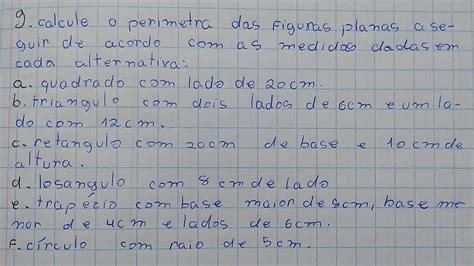 9. calcule o perimetra das figuras planas a se-
guir de acordo com as medidas dadas em
cada alternativa:
a. quadrado com lado de 20cm.
b. triangulo com dois lados de 6cm e um la-
do com 12cm.
c. retangulo com 20cm de base e 10cm de
altura.
d. losangulo com 8cm de lado
e. trapézio com base maior de 8cm, base me
nor de 4cm e lados de 6cm.
f. círculo com raio de 5cm.